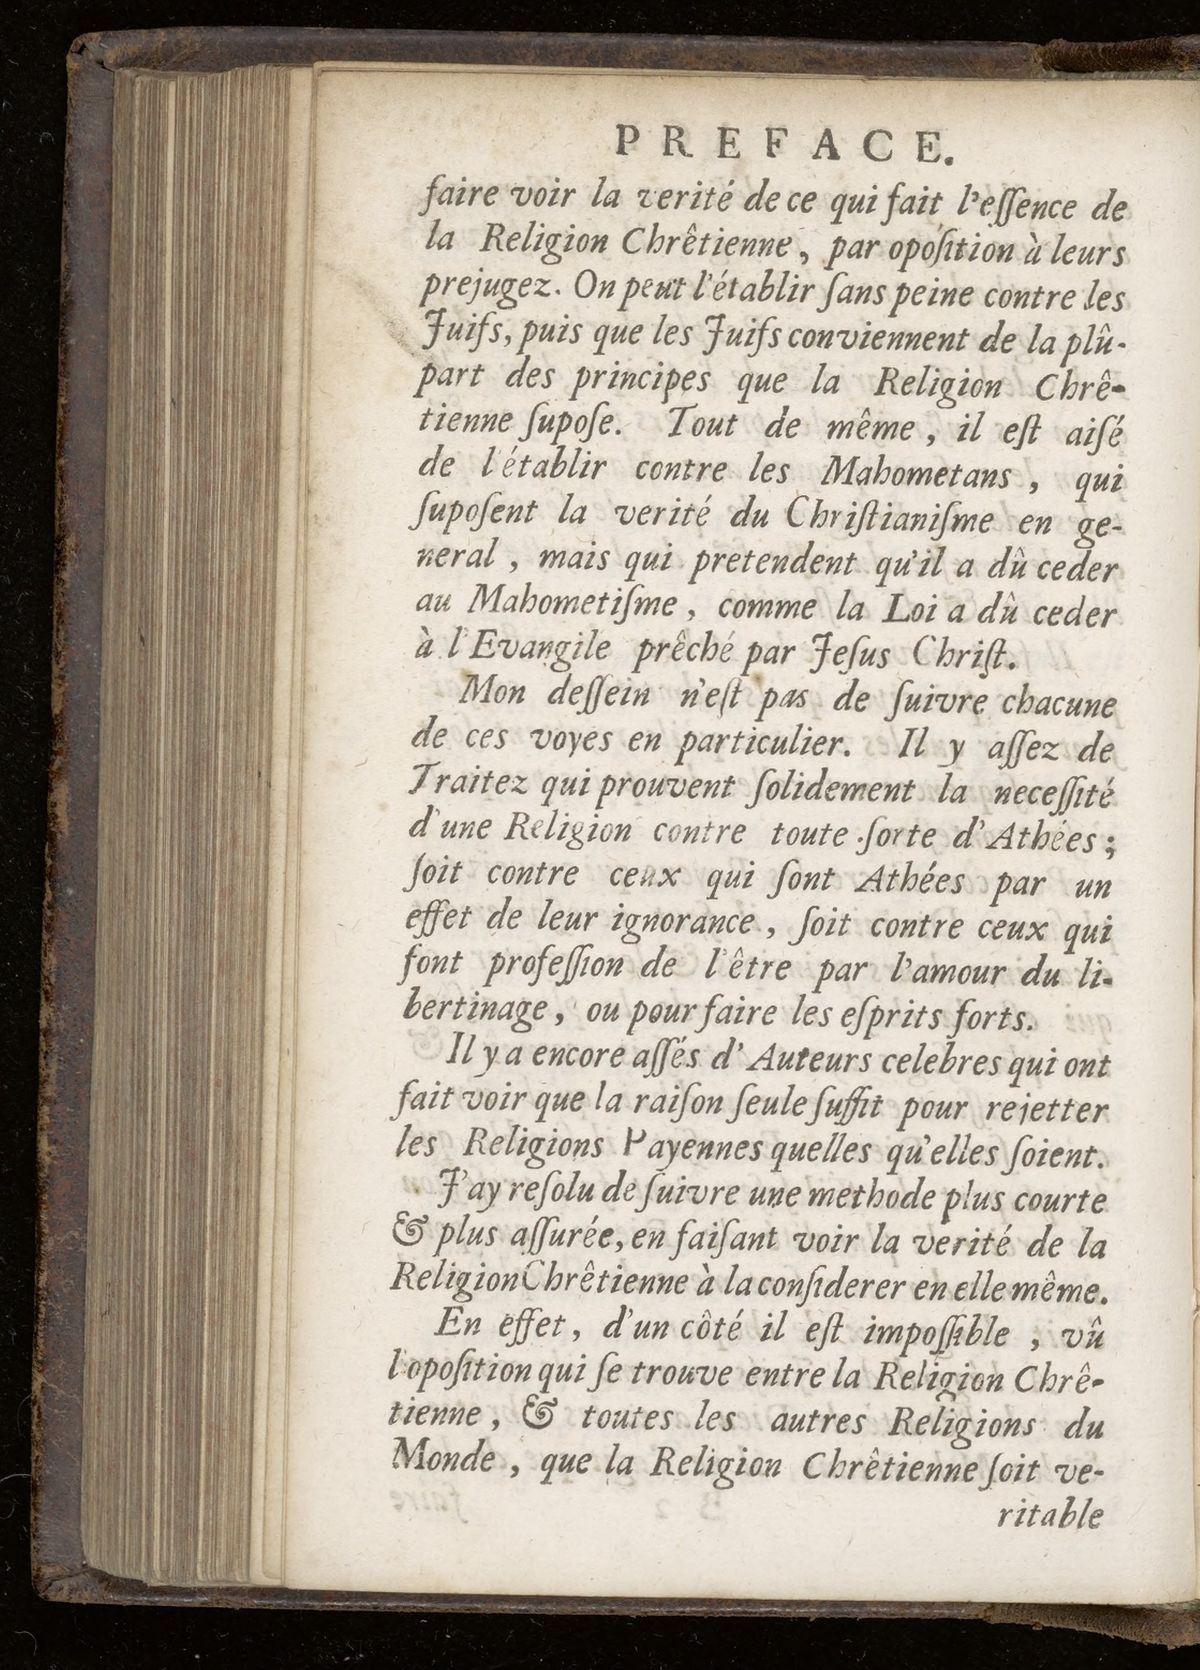 PREFACE.
faire voir la verité de ce qui fait l'eſſence de
la Religion Chrêtienne, par opoſition à leurs
prejugez. On peut l'établir ſans peine contre les
Juifs, puis que les Juifs conviennent de la plû-
part des principes que la Religion Chrê-
tienne ſupoſe. Tout de même, il eſt aiſé
de l'établir contre les Mahometans, qui
ſupoſent la verité du Chriſtianiſme en ge-
neral, mais qui pretendent qu'il a dû ceder
au Mahometiſme, comme la Loi a dû ceder
à l'Evangile prêché par Jeſus Chriſt.
Mon deſſein n'eſt pas de ſuivre chacune
de ces voyes en particulier. Il y aſſez de
Traitez qui prouvent ſolidement la neceſſité
d'une Religion contre toute ſorte d'Athées;
ſoit contre ceux qui ſont Athées par un
effet de leur ignorance, ſoit contre ceux qui
font profeſſion de l'être par l'amour du li-
bertinage, ou pour faire les eſprits forts.
Il y a encore aſſés d'Auteurs celebres qui ont
fait voir que la raiſon ſeule ſuffit pour rejetter
les Religions Payennes quelles qu'elles ſoient.
J'ay reſolu de ſuivre une methode plus courte
& plus aſſurée, en faiſant voir la verité de la
Religion Chrêtienne à la conſiderer en elle même.
En effet, d'un côté il eſt impoſſible, vû
l'opoſition qui ſe trouve entre la Religion Chrê-
tienne, & toutes les autres Religions du
Monde, que la Religion Chrêtienne ſoit ve-
ritable